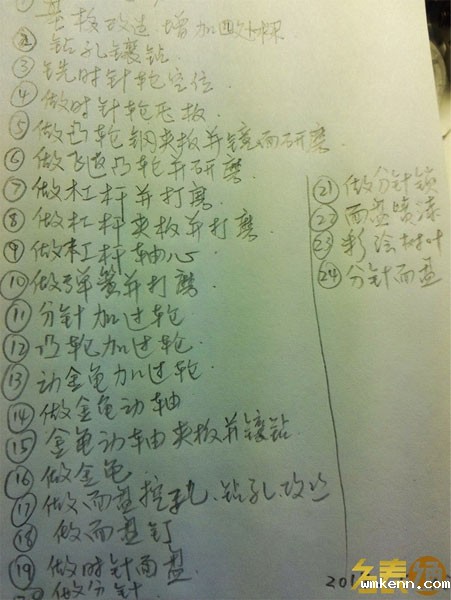 ① 基板改造增加
② 钻孔镶钻.
③ 铣时针轮空位.
④ 做时针轮压板
⑤ 做凸轮钢夹板并镜面研磨.
⑥ 做飞返凸轮并研磨.
⑦ 做杠杆并打磨.
⑧ 做杠杆夹板并打磨
⑨ 做杠杆轴心
⑩ 做弹簧并打磨.
⑪ 分针加过轮
⑫ 凸轮加过轮.
⑬ 动金龟加过轮.
⑭ 做金龟动轴
⑮ 金龟动轴夹板并镶钻
⑯ 做金龟.
⑰ 做面盘挖孔、钻孔攻丝
⑱ 做面盘钉
⑲ 做时针面盘.
做分针
㉑ 做分针锁
㉒ 面盘喷漆
㉓ 彩绘树叶
㉔ 分针面盘
201
名表
www.wmkenn.com